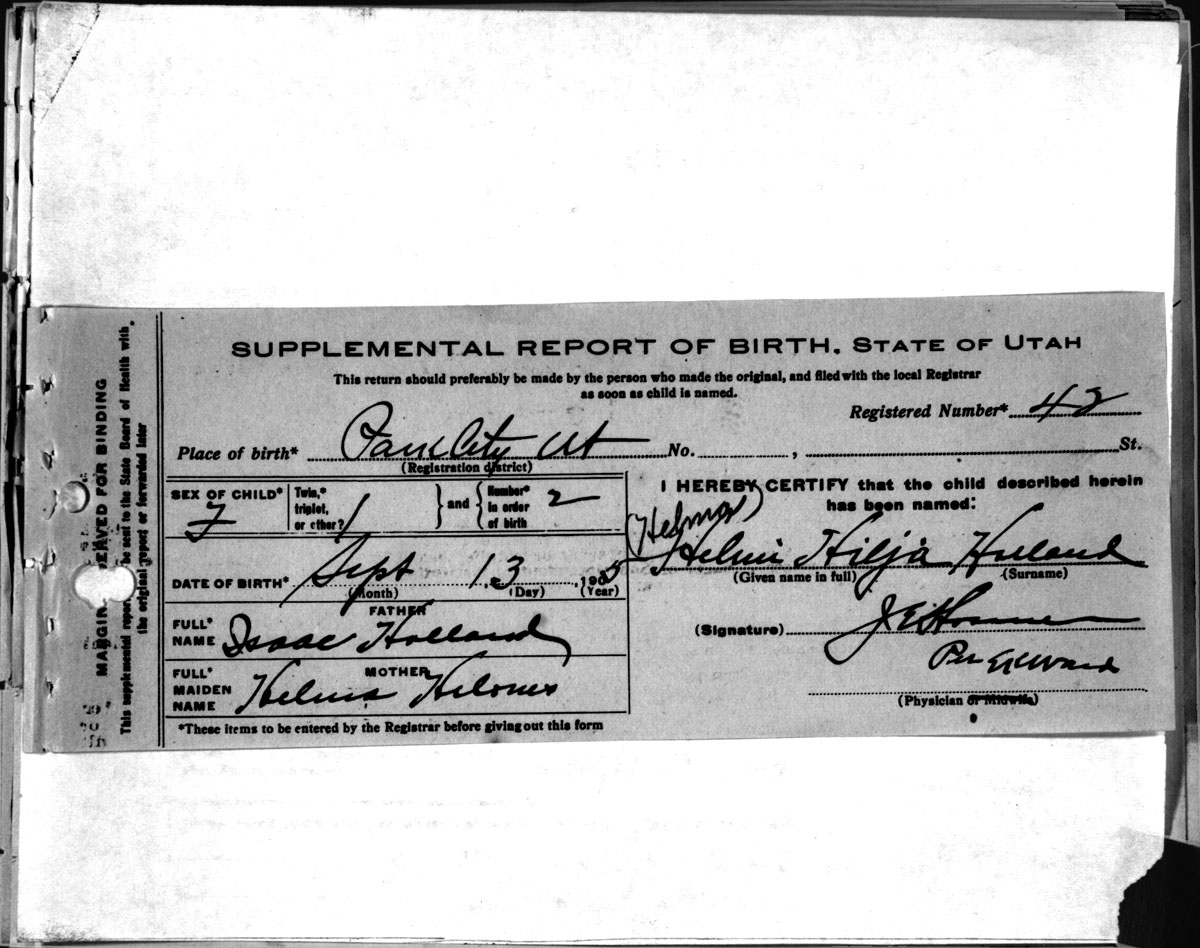 SUPPLEMENTAL REPORT OF BIRTH. STATE OF UTAH
This return should preferably be made by the person who made the original, and filed with the local Registrar
as soon as child is named.
Registered Number* 42
Place of birth* Park City Ut No. , St.
(Registration district)
SEX OF CHILD* F
Twin,* triplet, or other? 1
and
Number* in order of birth 2
DATE OF BIRTH* Sept 13, 1905
(Month) (Day) (Year)
FATHER
FULL* NAME Isaac Holland
MOTHER
FULL* MAIDEN NAME Helma
*These items to be entered by the Registrar before giving out this form
I HEREBY CERTIFY that the child described herein
has been named:
(Helma)
Helmi Hilja Holland
(Given name in full) (Surname)
(Signature) J E
Per
(Physician or Midwife)
MARGIN RESERVED FOR BINDING
This supplemental report be sent to the State Board of Health with
the original report or forwarded later